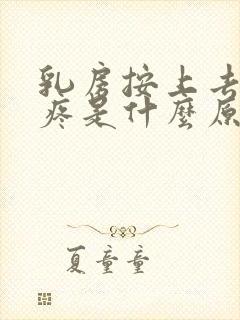 乳房按上去
疼是什麼原
夏童童